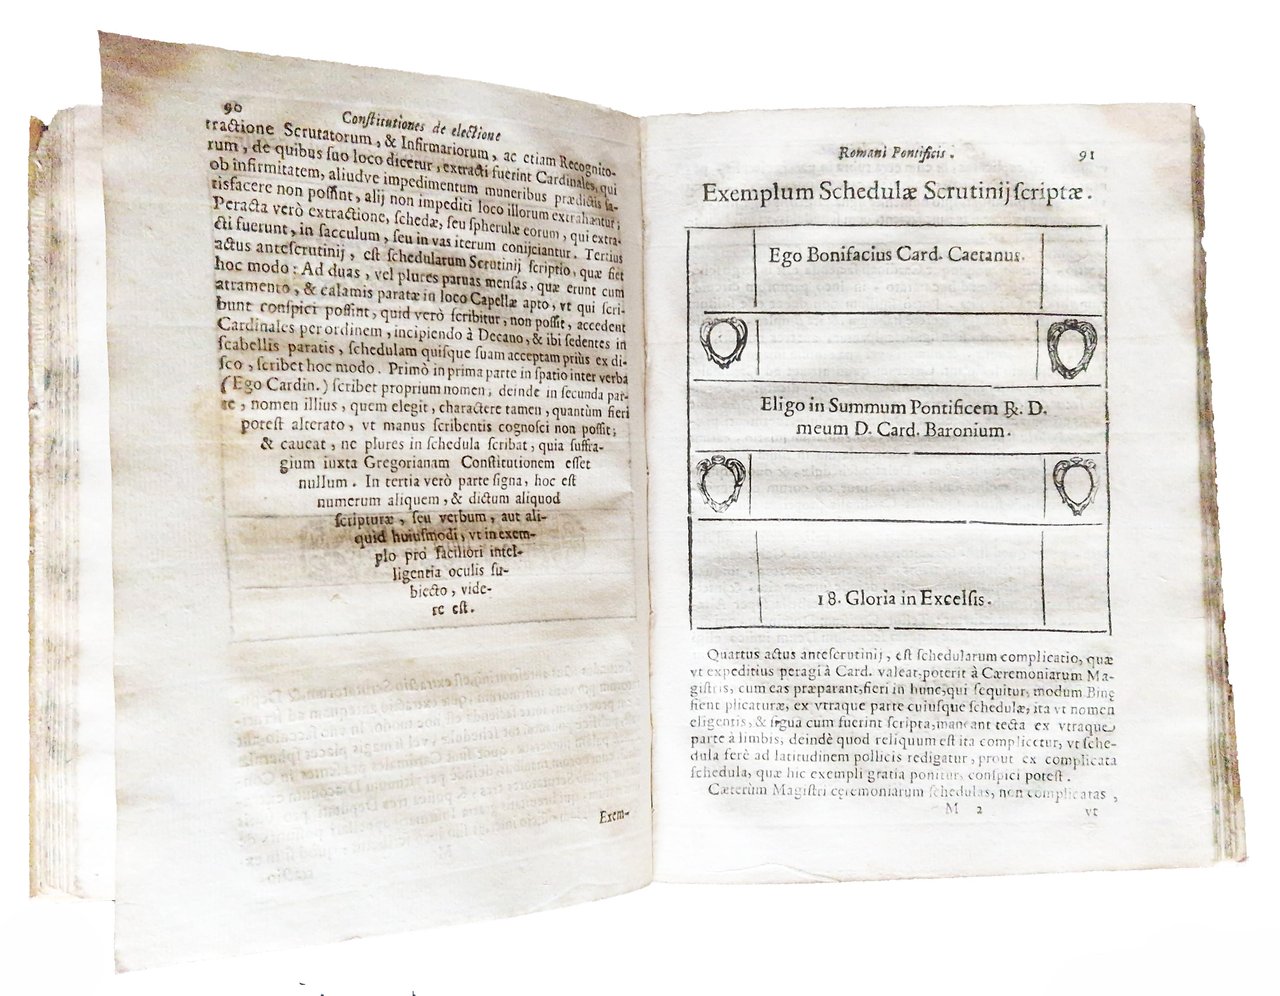 90
Conſtitutiones de electione
tractione Scrutatorum, & Infirmariorum, ac etiam Recognito-
rum, de quibus ſuo loco dicetur, extracti fuerint Cardinales, qui
ob infirmitatem, aliudve impedimentum muneribus prædictis ſa-
tisfacere non poſſint, alij non impediti loco illorum extrahantur;
Peracta verò extractione, ſchedæ, ſeu ſpherulæ eorum, qui extra-
cti fuerunt, in ſacculum, ſeu in vas iterum conijciantur. Tertius
actus anteſcrutinij, eſt ſchedularum Scrutinij ſcriptio, quæ fiet
hoc modo: Ad duas, vel plures paruas menſas, quæ erunt cum
atramento, & calamis paratæ in loco Capellæ apto, vt qui ſcri-
bunt conſpici poſſint, quid verò ſcribitur, non poſſit, accedent
Cardinales per ordinem, incipiendo à Decano, & ibi ſedentes in
ſcabellis paratis, ſchedulam quiſque ſuam acceptam priùs ex di-
ſco, ſcribet hoc modo. Primò in prima parte in ſpatio inter verba
(Ego Cardin.) ſcribet proprium nomen, deinde in ſecunda par-
te, nomen illius, quem elegit, charactere tamen, quantùm fieri
poteſt alterato, vt manus ſcribentis cognoſci non poſſit;
& caueat, ne plures in ſchedula ſcribat, quia ſuffra-
gium iuxta Gregorianam Conſtitutionem eſſet
nullum. In tertia verò parte ſigna, hoc eſt
numerum aliquem, & dictum aliquod
ſcripturæ, ſeu verbum, aut ali-
quid huiuſmodi, vt in exem-
plo pro faciliori intel-
ligentia oculis ſu-
biecto, vide-
re eſt.
Exem-
Romani Pontificis.
91
Exemplum Schedulæ Scrutinij ſcriptæ.
Ego Bonifacius Card. Caetanus.
Eligo in Summum Pontificem R. D.
meum D. Card. Baronium.
18. Gloria in Excelſis.
Quartus actus anteſcrutinij, eſt ſchedularum complicatio, quæ
vt expeditius peragi à Card. valeat, poterit à Cæremoniarum Ma-
giſtris, cum eas præparant, fieri in hunc, qui ſequitur, modum Binę
fient plicaturæ, ex vtraque parte cuiuſque ſchedulæ, ita vt nomen
eligentis, & ſigna cum fuerint ſcripta, maneant tecta ex vtraque
parte à limbis, deindè quod reliquum eſt ita complicetur, vt ſche-
dula ferè ad latitudinem pollicis redigatur, prout ex complicata
ſchedula, quæ hic exempli gratia ponitur, conſpici poteſt.
Cæterùm Magiſtri cęremoniarum ſchedulas, non complicatas,
M 2
vt